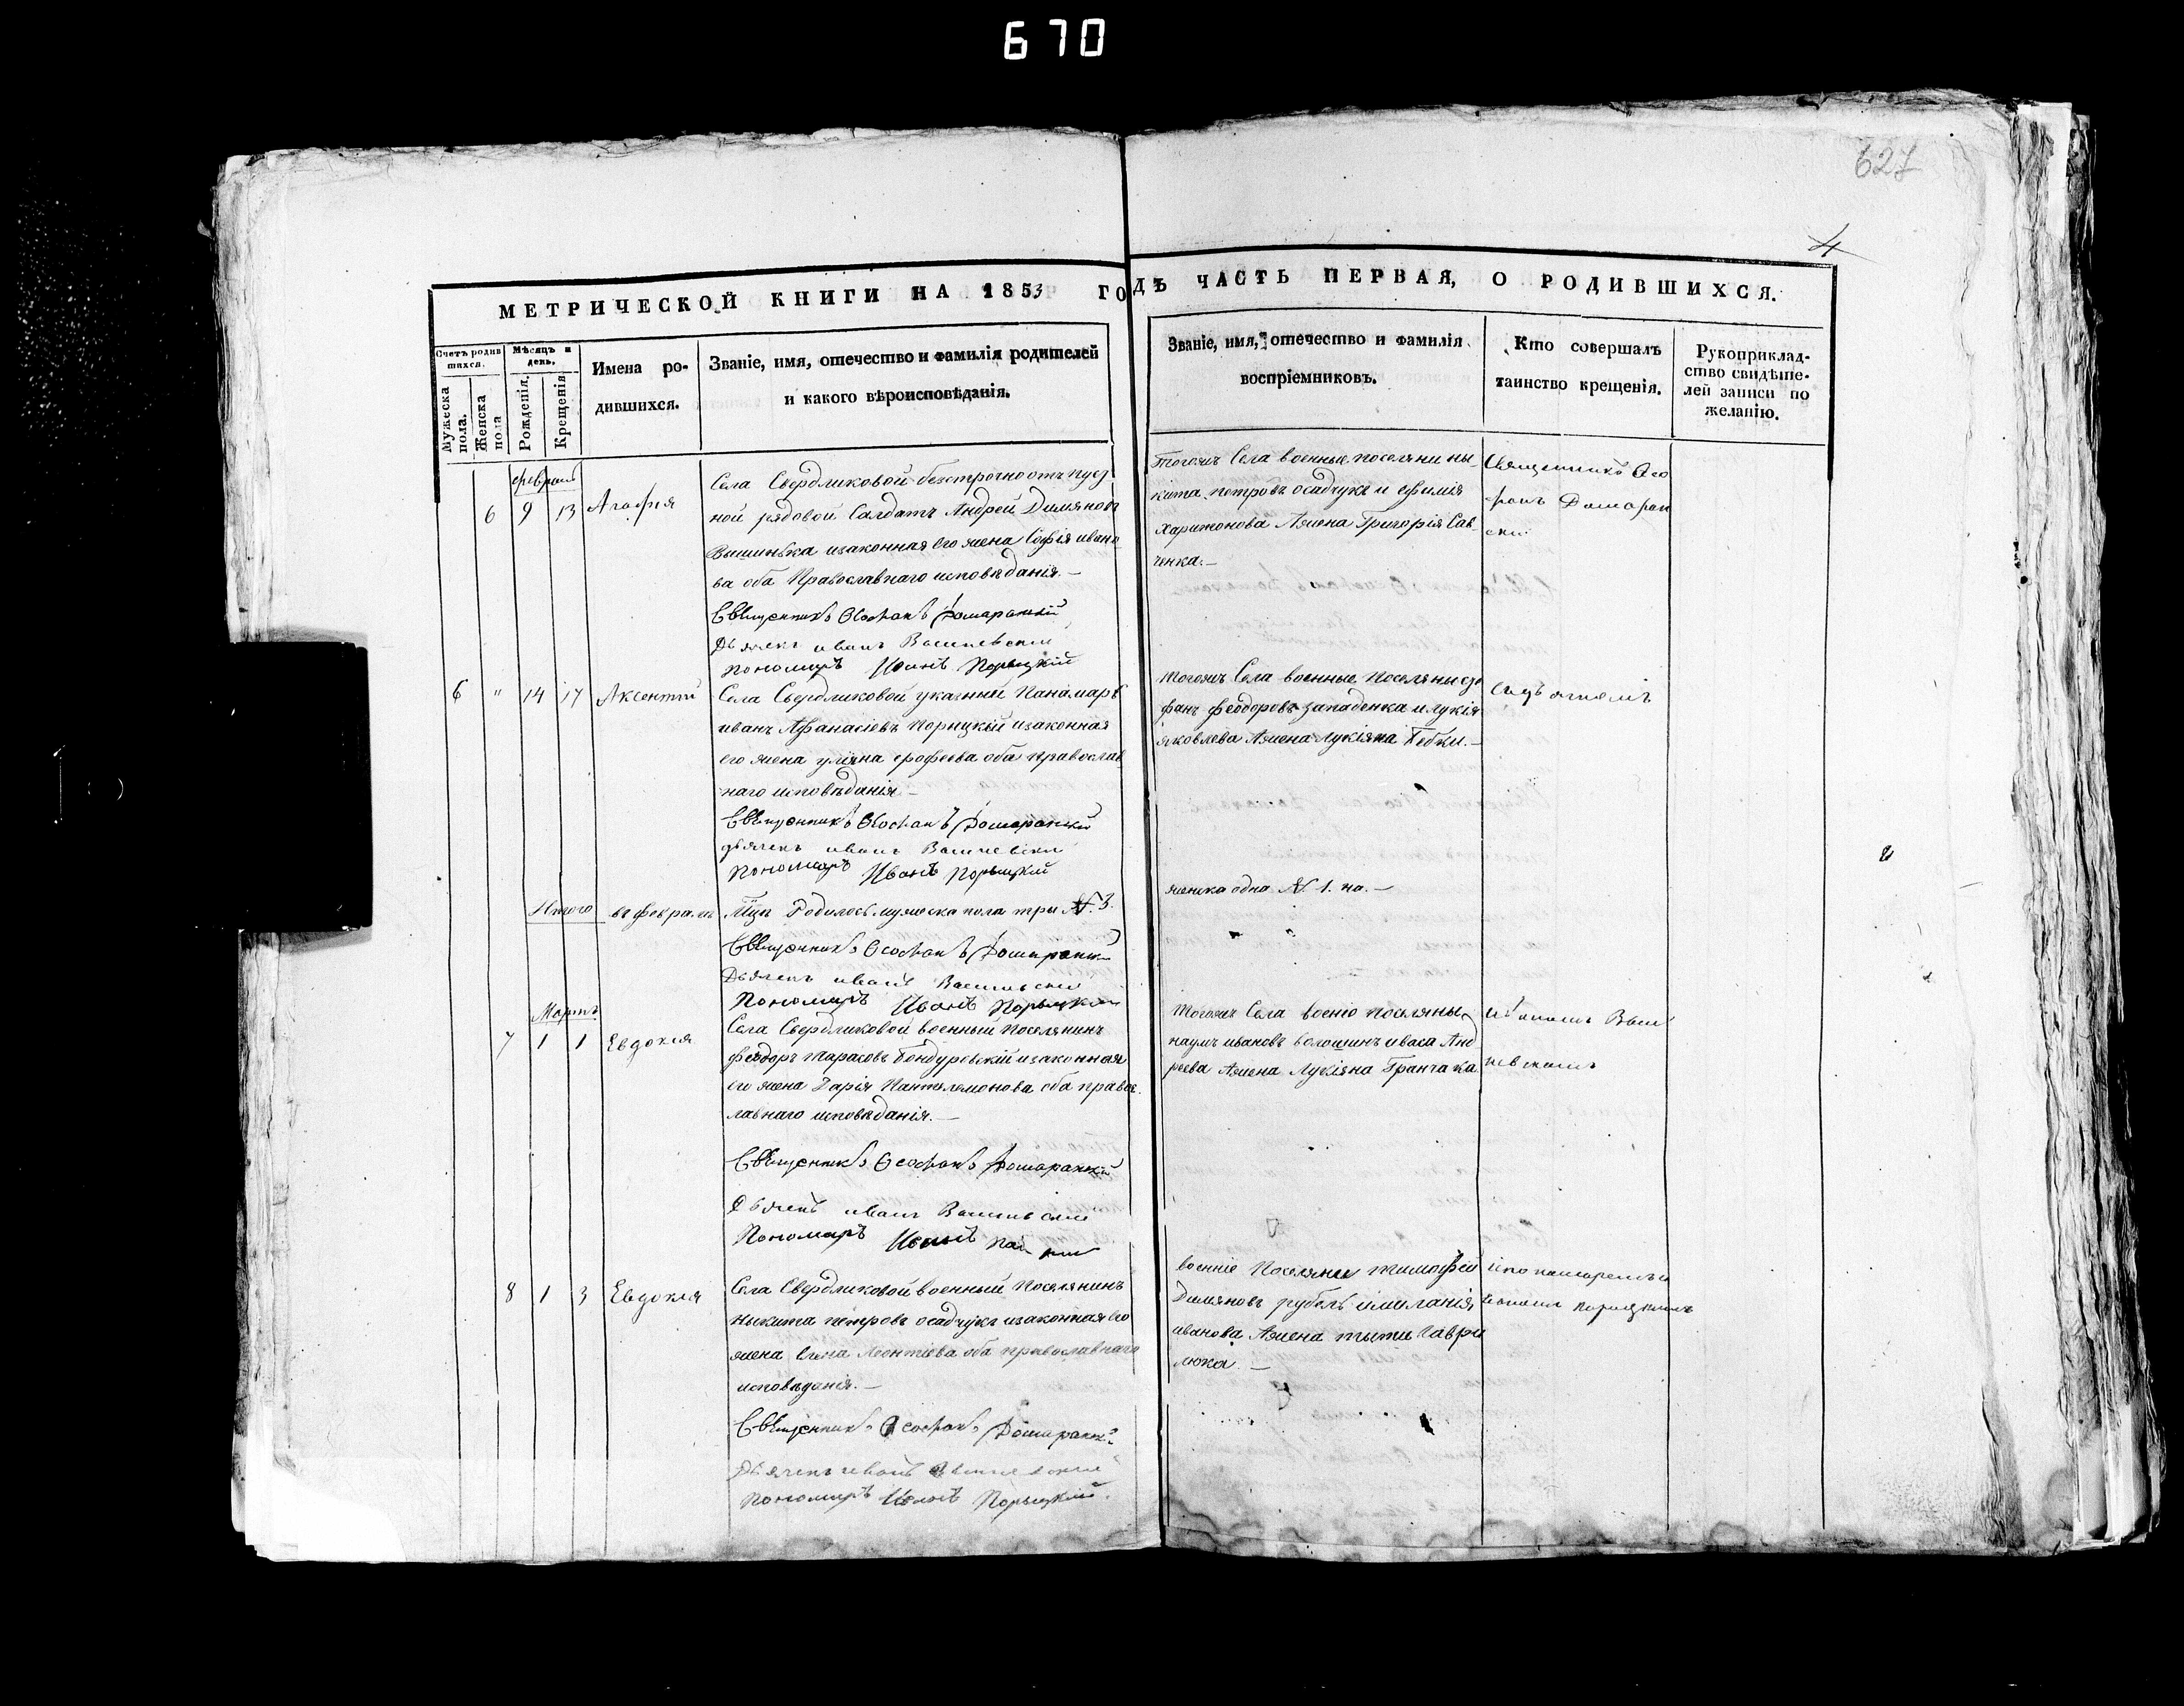 670
627
4
МЕТРИЧЕСКОЙ КНИГИ НА 1853 ГОДЪ ЧАСТЬ ПЕРВАЯ, О РОДИВШИХСЯ.
Счетъ родившихся.
Мужеска пола.
Женска пола
Мѣсяцъ и день.
Рожденія.
Крещенія
Имена родившихся.
Званіе, имя, отечество и фамилія родителей
и какого вѣроисповѣданія.
Званіе, имя, отечество и фамилія
воспріемниковъ.
Кто совершалъ
таинство крещенія.
Рукоприклад-
ство свидѣте-
лей записи по
желанію.
февраль
6 9 13 Агафия
Села Свердликовой безсрочноотъпуск
ной рядовой Салдатъ Андрей Димяновъ
Вишинька изаконная его жена Софія ивано
ва оба Православнаго исповѣданія.—
Священникъ Ѳеофанъ Домаранскій
Дьячекъ иванъ Васи
пономарь Иванъ Порыцкій
Тогожъ Села военные поселяни ны-
кита петровъ осадчукъ и ефимія
Харитонова Ажена Григорія Сав-
ченка.—
Священникъ Ѳео
фанъ Домаран
скій
6 " 14 17 Аксентий
Села Свердликовой указний Панамарь
иванъ Афанасіевъ Порицкій изаконная
его жена уліяна ерофеева оба православ
наго исповѣданія—
Священникъ Ѳеофанъ Домаранскій
дьячекъ иванъ
пономарь Иванъ Порыцкій
Тогожъ Села военные Поселяны
фанъ феодоровъ западенка илукія
яковлева Ажена лукіяна
Итого въ февралѣ мцѣ Родилось мужеска пола три №. 3.
женска одна №. 1. на.—
Священникъ Ѳеофанъ Домаранскій
Дьячекъ иванъ
Пономарь Иванъ Порыцкій
Мартъ
7 1 1 Евдокия
Села Свердликовой военный Поселянинъ
феодоръ тарасовъ бондуровскій изаконная
его жена Дарія Пантелемонова оба правос
лавнаго исповѣданія.—
Священникъ Ѳеофанъ Домаранскій
Дьячекъ иванъ
Пономарь Иванъ
Тогожъ Села поселяны
наумъ ивановъ волошинъ иваса Анд
реева Ажена Лукіяна Гранчака
8 1 3 Евдокия
Села Свердликовой военный Поселянинъ
ныкита петровъ осадчукъ изаконная его
жена Елена Леонтіева оба православнаго
исповѣданія.—
Священникъ Ѳеофанъ Домаранскій
Дьячекъ иванъ
пономарь Иванъ Порыцкій.
военніе Поселяне тимофій
Димяновъ рубель имиланія
иванова Ажена тыти Гаври
люка.—